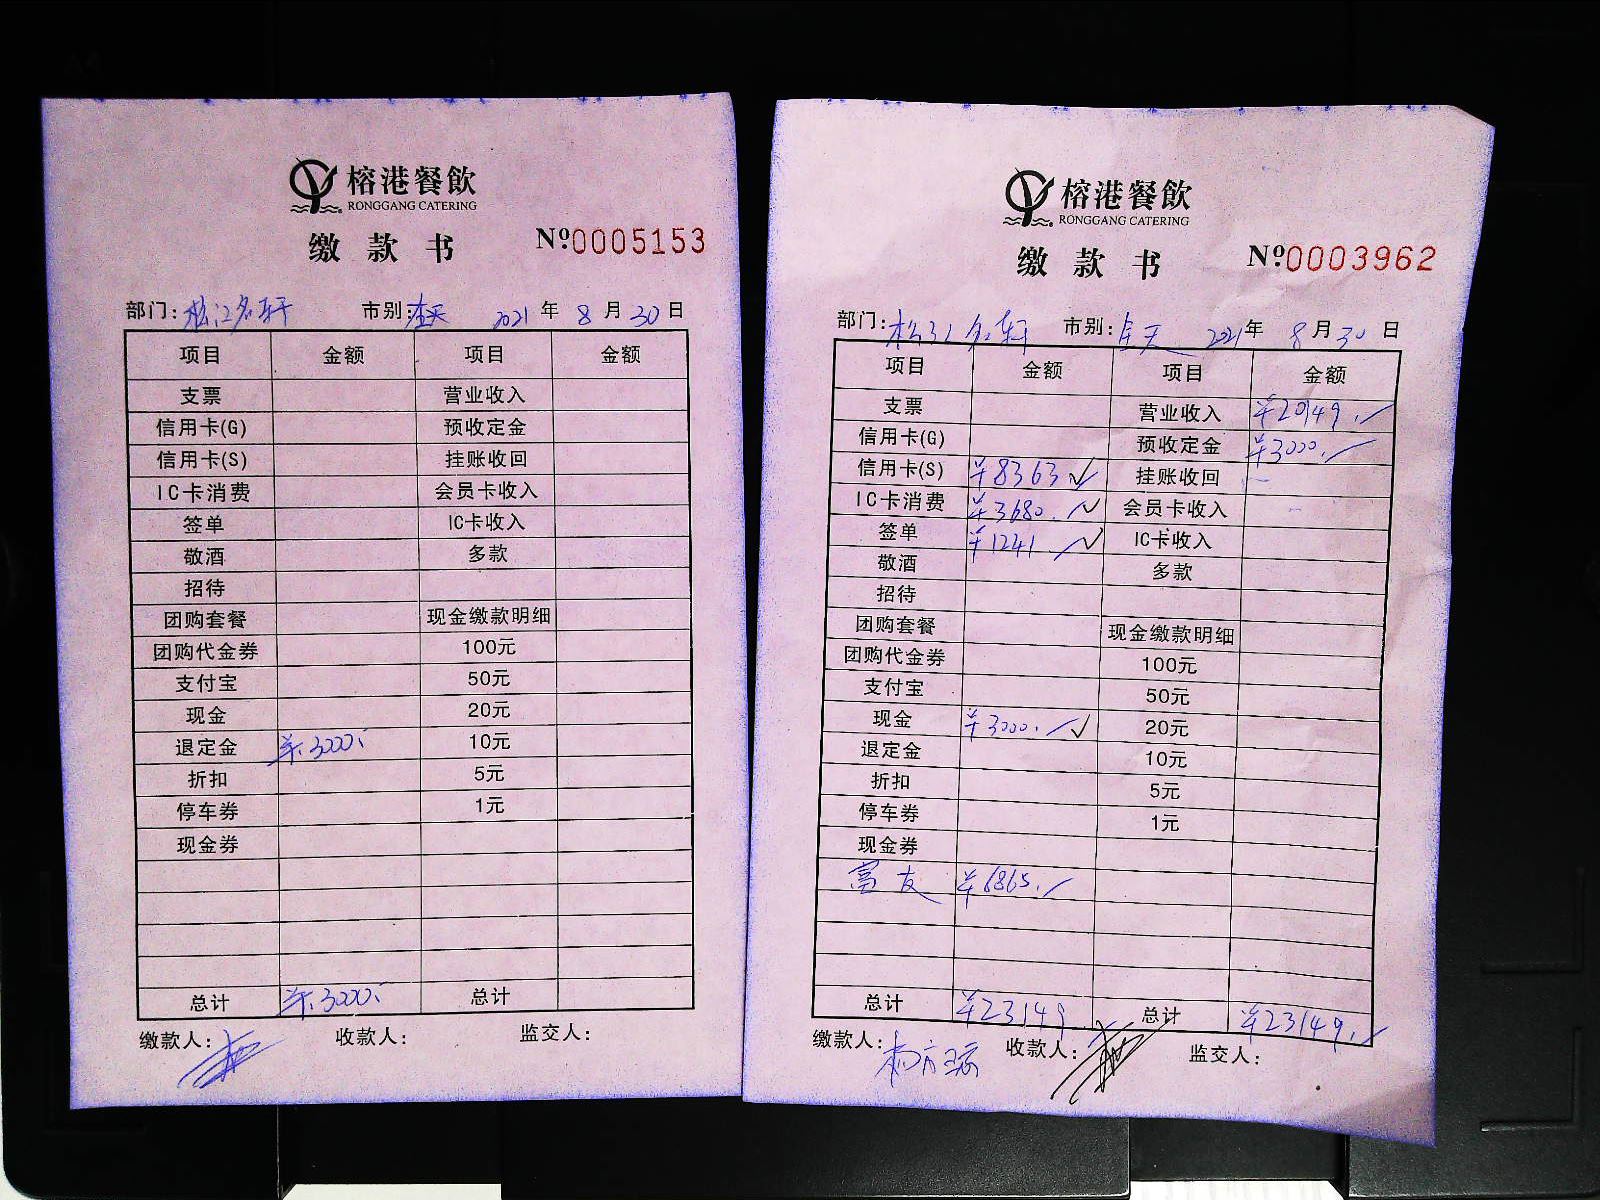 榕港餐飲
RONGGANG CATERING
缴款书 №0005153
部门: 松江名轩 市别: 全天 2021年 8月30日
项目 金额 项目 金额
支票 营业收入
信用卡(G) 预收定金
信用卡(S) 挂账收回
IC卡消费 会员卡收入
签单 IC卡收入
敬酒 多款
招待
团购套餐 现金缴款明细
团购代金券 100元
支付宝 50元
现金 20元
退定金 ¥3000 10元
折扣 5元
停车券 1元
现金券
总计 ¥3000 总计
缴款人: 收款人: 监交人:
榕港餐飲
RONGGANG CATERING
缴款书 №0003962
部门: 松江名轩 市别: 全天 2021年 8月30日
项目 金额 项目 金额
支票 营业收入 ¥20149.
信用卡(G) 预收定金 ¥3000.
信用卡(S) ¥8363 挂账收回
IC卡消费 ¥3680. 会员卡收入
签单 ¥1241 IC卡收入
敬酒 多款
招待
团购套餐 现金缴款明细
团购代金券 100元
支付宝 50元
现金 ¥3000. 20元
退定金 10元
折扣 5元
停车券 1元
现金券
富友 ¥6865.
总计 ¥23149 总计 ¥23149.
缴款人: 收款人: 监交人: